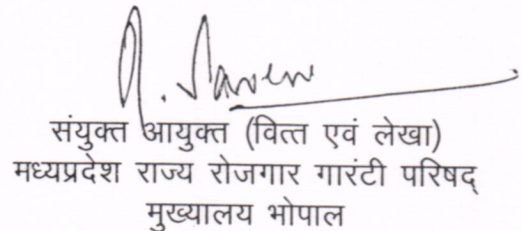 संयुक्त आयुक्त (वित्त एवं लेखा)
मध्यप्रदेश राज्य रोजगार गारंटी परिषद्
मुख्यालय भोपाल